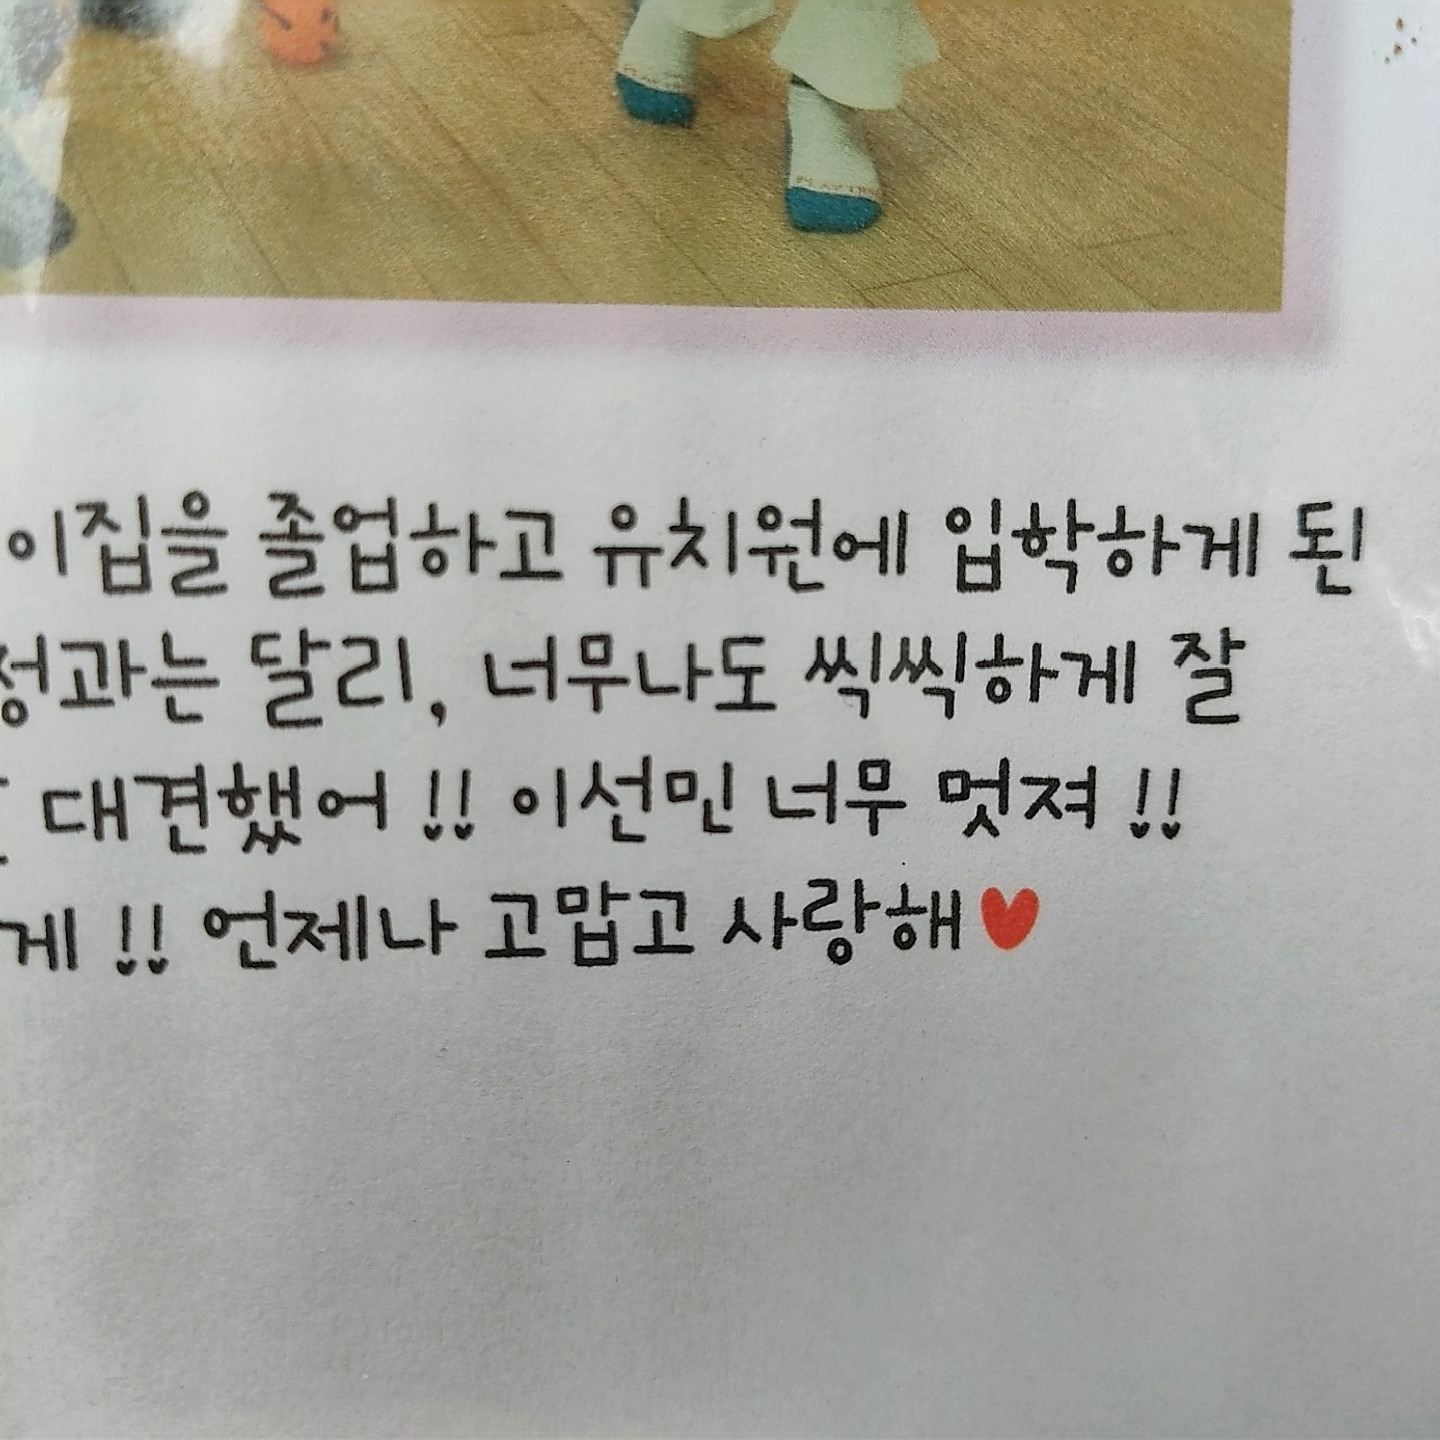 이집을 졸업하고 유치원에 입학하게 된
정과는 달리, 너무나도 씩씩하게 잘
대견했어 !! 이선민 너무 멋져 !!
게 !! 언제나 고맙고 사랑해♥